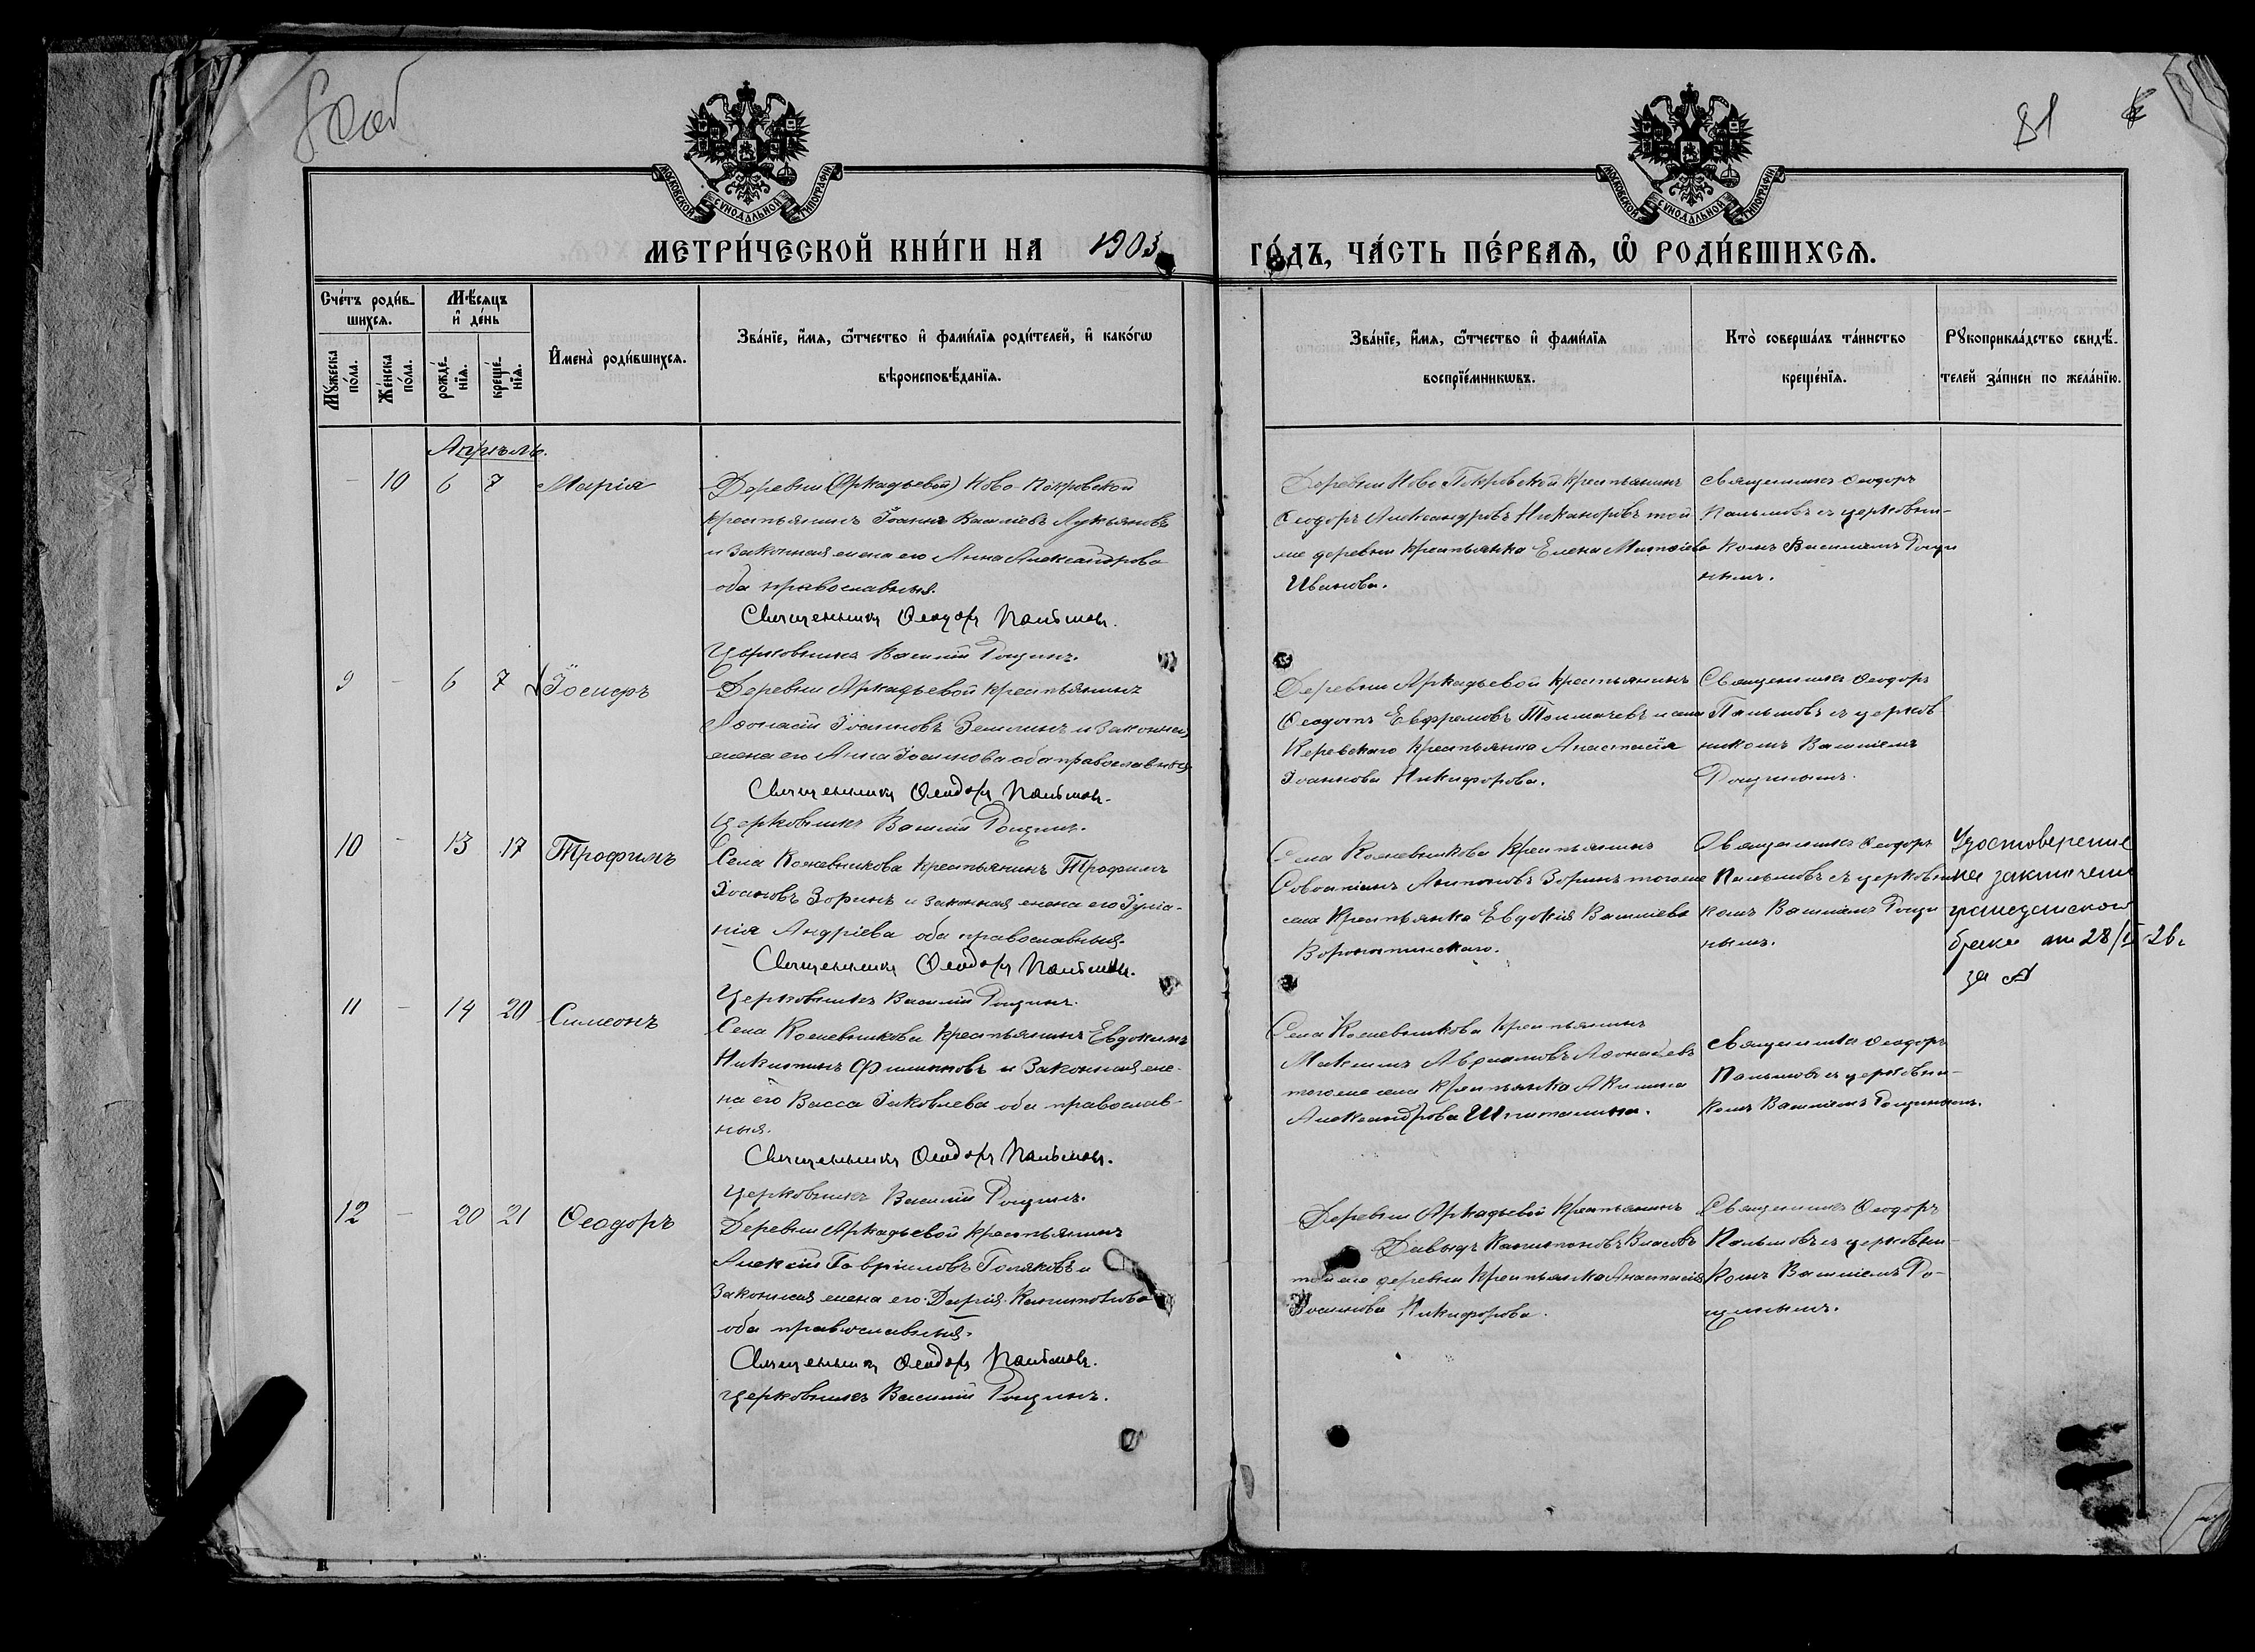 81
МОСКОВСКОЙ СУНОДАЛЬНОЙ ТИПОГРАФІИ
МОСКОВСКОЙ СУНОДАЛЬНОЙ ТИПОГРАФІИ
МЕТРИ́ЧЕСКОЙ КНИ́ГИ НА 1903
ГО́ДЪ, ЧА́СТЬ ПЕ́РВАѦ, Ѡ҆ РОДИ́ВШИХСѦ.
Сче́тъ роди́в-
шихсѧ.
Мѣ́сѧцъ
и҆ де́нь
Мꙋ́жеска
по́ла.
Же́нска
по́ла.
рожде́-
нїѧ.
креще́-
нїѧ.
И҆мена̀ роди́вшихсѧ.
Зва́нїе, и҆́мѧ, ѻ҆́тчество и҆ фами́лїѧ роди́телей, и҆ како́гѡ
вѣроисповѣ́данїѧ.
Зва́нїе, и҆́мѧ, ѻ҆́тчество и҆ фами́лїѧ
воспрїе́мникѡвъ.
Кто̀ соверша́лъ та́инство
креще́нїѧ.
Рꙋкоприкла́дство свидѣ́-
телей за́писи по жела́нїю.
Апрѣль.
- 10 6 7 Марія
Деревни (Аркадьевой) Ново-Покровской
крестьянинъ Іоаннъ Василіевъ Лукьяновъ
и законная жена его Анна Александрова
оба православныя.
Священникъ Ѳеодоръ Пальмовъ.
Церковникъ Василій Рощинъ.
Деревни Ново Покровской крестьянинъ
Ѳеодоръ Александровъ Никаноровъ той
же деревни крестьянка Елена Матѳіева
Иванова.
Священникъ Ѳеодоръ
Пальмовъ съ церковни-
комъ Василіемъ Рощи
нымъ.
9 - 6 7 Іосифъ
Деревни Аркадьевой крестьянинъ
Аѳонасій Іоанновъ Землинъ и законная
жена его Анна Іоаннова оба православныя
Священникъ Ѳеодоръ Пальмовъ.
Церковникъ Василій Рощинъ.
Деревни Аркадьевой крестьянинъ
Ѳеодотъ Евфремовъ Толмачевъ и села
Керевскаго крестьянка Анастасія
Іоаннова Никифорова.
Священникъ Ѳеодоръ
Пальмовъ съ церков
никомъ Василіемъ
Рощинымъ.
10 - 13 17 Трофимъ
Села Кожевникова крестьянинъ Трофимъ
Іоановъ Зоринъ и законная жена его Іулiа-
нія Андріева оба православныя.
Священникъ Ѳеодоръ Пальмовъ.
Церковникъ Василій Рощинъ.
Села Кожевникова крестьянинъ
Антоновъ Зоринъ тогоже
села крестьянка Евдокія Василіева
Священникъ Ѳеодоръ
Пальмовъ съ церковни
комъ Василіемъ Рощи
нымъ.
Удостоверение
на заключение
гражданского
брака от 28/ 26г
за №
11 - 14 20 Симеонъ
Села Кожевникова крестьянинъ Евдокимъ
Никитинъ Филипповъ и законная же-
на его Васса Іаковлева оба православ-
ныя.
Священникъ Ѳеодоръ Пальмовъ.
Церковникъ Василій Рощинъ.
Села Кожевникова крестьянинъ
Максимъ Авраамовъ Аѳонасьевъ
тогоже села крестьянка Акилина
Александрова Шпиталина.
Священникъ Ѳеодоръ
Пальмовъ съ церковни-
комъ Василіемъ Рощинымъ.
12 - 20 21 Ѳеодоръ
Деревни Аркадьевой крестьянинъ
Алексій Гавріиловъ Поляковъ и
законная жена его Дарія Капитонова
оба православныя.
Священникъ Ѳеодоръ Пальмовъ.
Церковникъ Василій Рощинъ.
Деревни Аркадьевой крестьянинъ
Давыдъ Капитоновъ Власовъ
той же деревни крестьянка Анастасія
Іоаннова Никифорова.
Священникъ Ѳеодоръ
Пальмовъ съ церковни-
комъ Василіемъ Ро-
щинымъ.